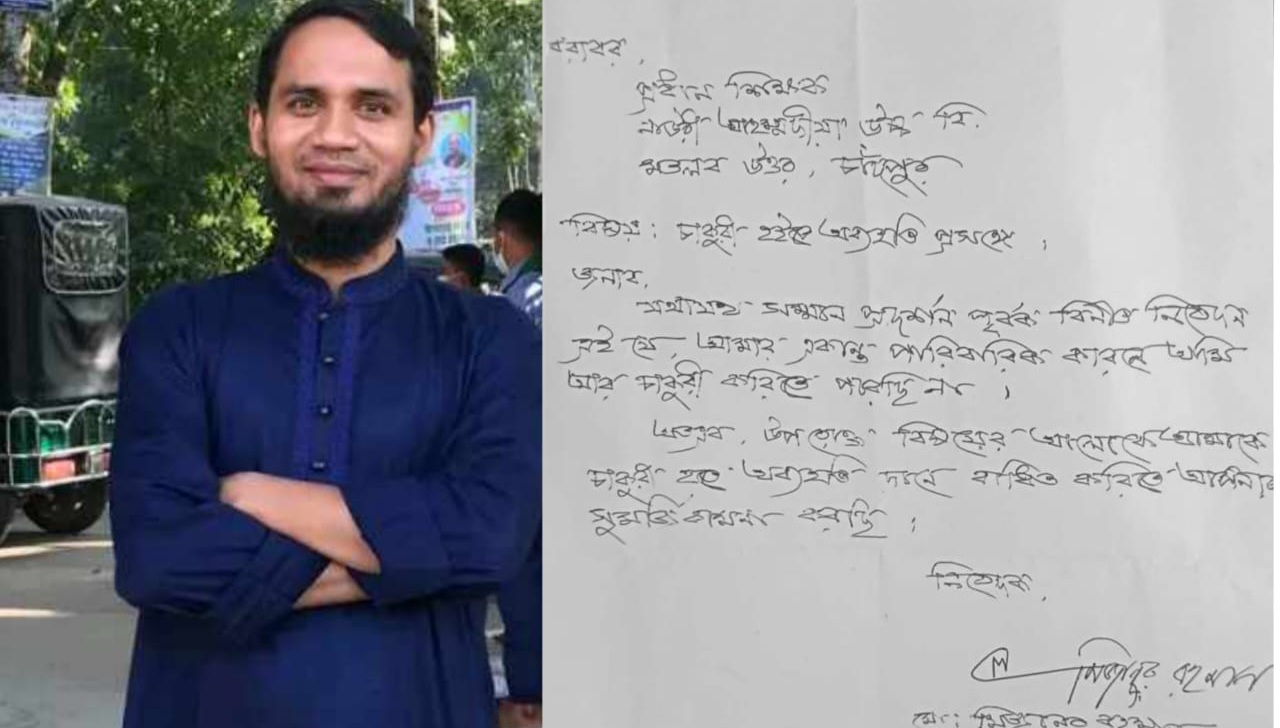 বরাবর,
প্রধান শিক্ষক
নাউরী আহম্মদীয়া উচ্চ বি.
মতলব উত্তর, চাঁদপুর
বিষয়: চাকুরী হইতে অব্যহতি প্রসঙ্গে।
জনাব,
যথাযথ সম্মান প্রদর্শন পূর্বক বিনীত নিবেদন
এই যে, আমার একান্ত পারিবারিক কারনে আমি
আর চাকুরী করিতে পারছি না।
অতএব, উপরোক্ত বিষয়ের আলোকে আমাকে
চাকুরী হতে অব্যহতি দানে বাধিত করিতে আপনার
সুমর্জি কামনা করছি।
নিবেদক,
মিজানুর রহমান
মো: মিজানুর রহমান